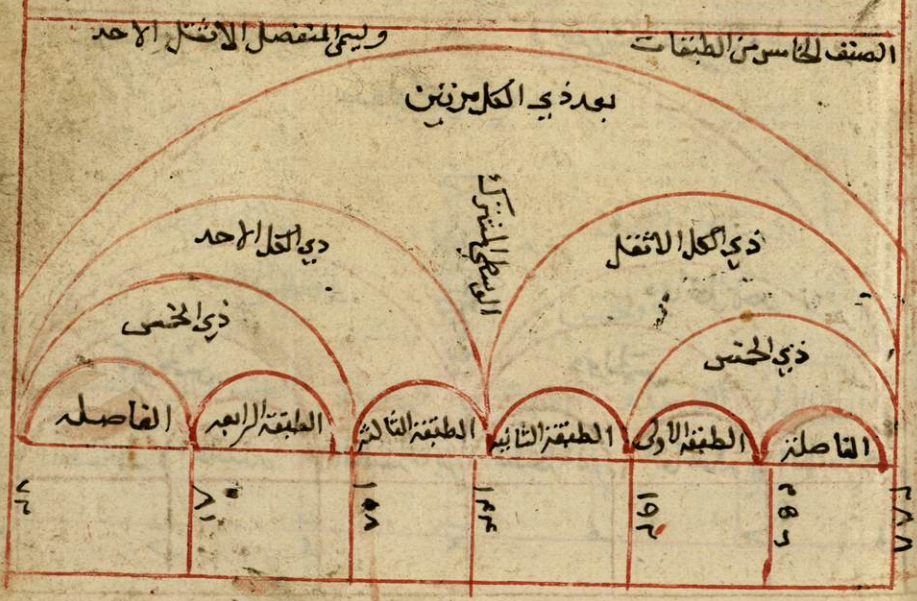 الصنف الخامس من الطبقات ويسمى المنفصل الاثقل الاحد
بعد ذي الكل مرتين
ذي الكل الاثقل
الوسطى المشترك
ذي الكل الاحد
ذي الخمس
ذي الخمس
الفاصلة الطبقة الاولى الطبقة الثانيه الطبقة الثالثة الطبقة الرابعه الفاصله
٢٨٨
٢٥٦
١٩٢
١٤٤
١٠٨
٨١
٧٢